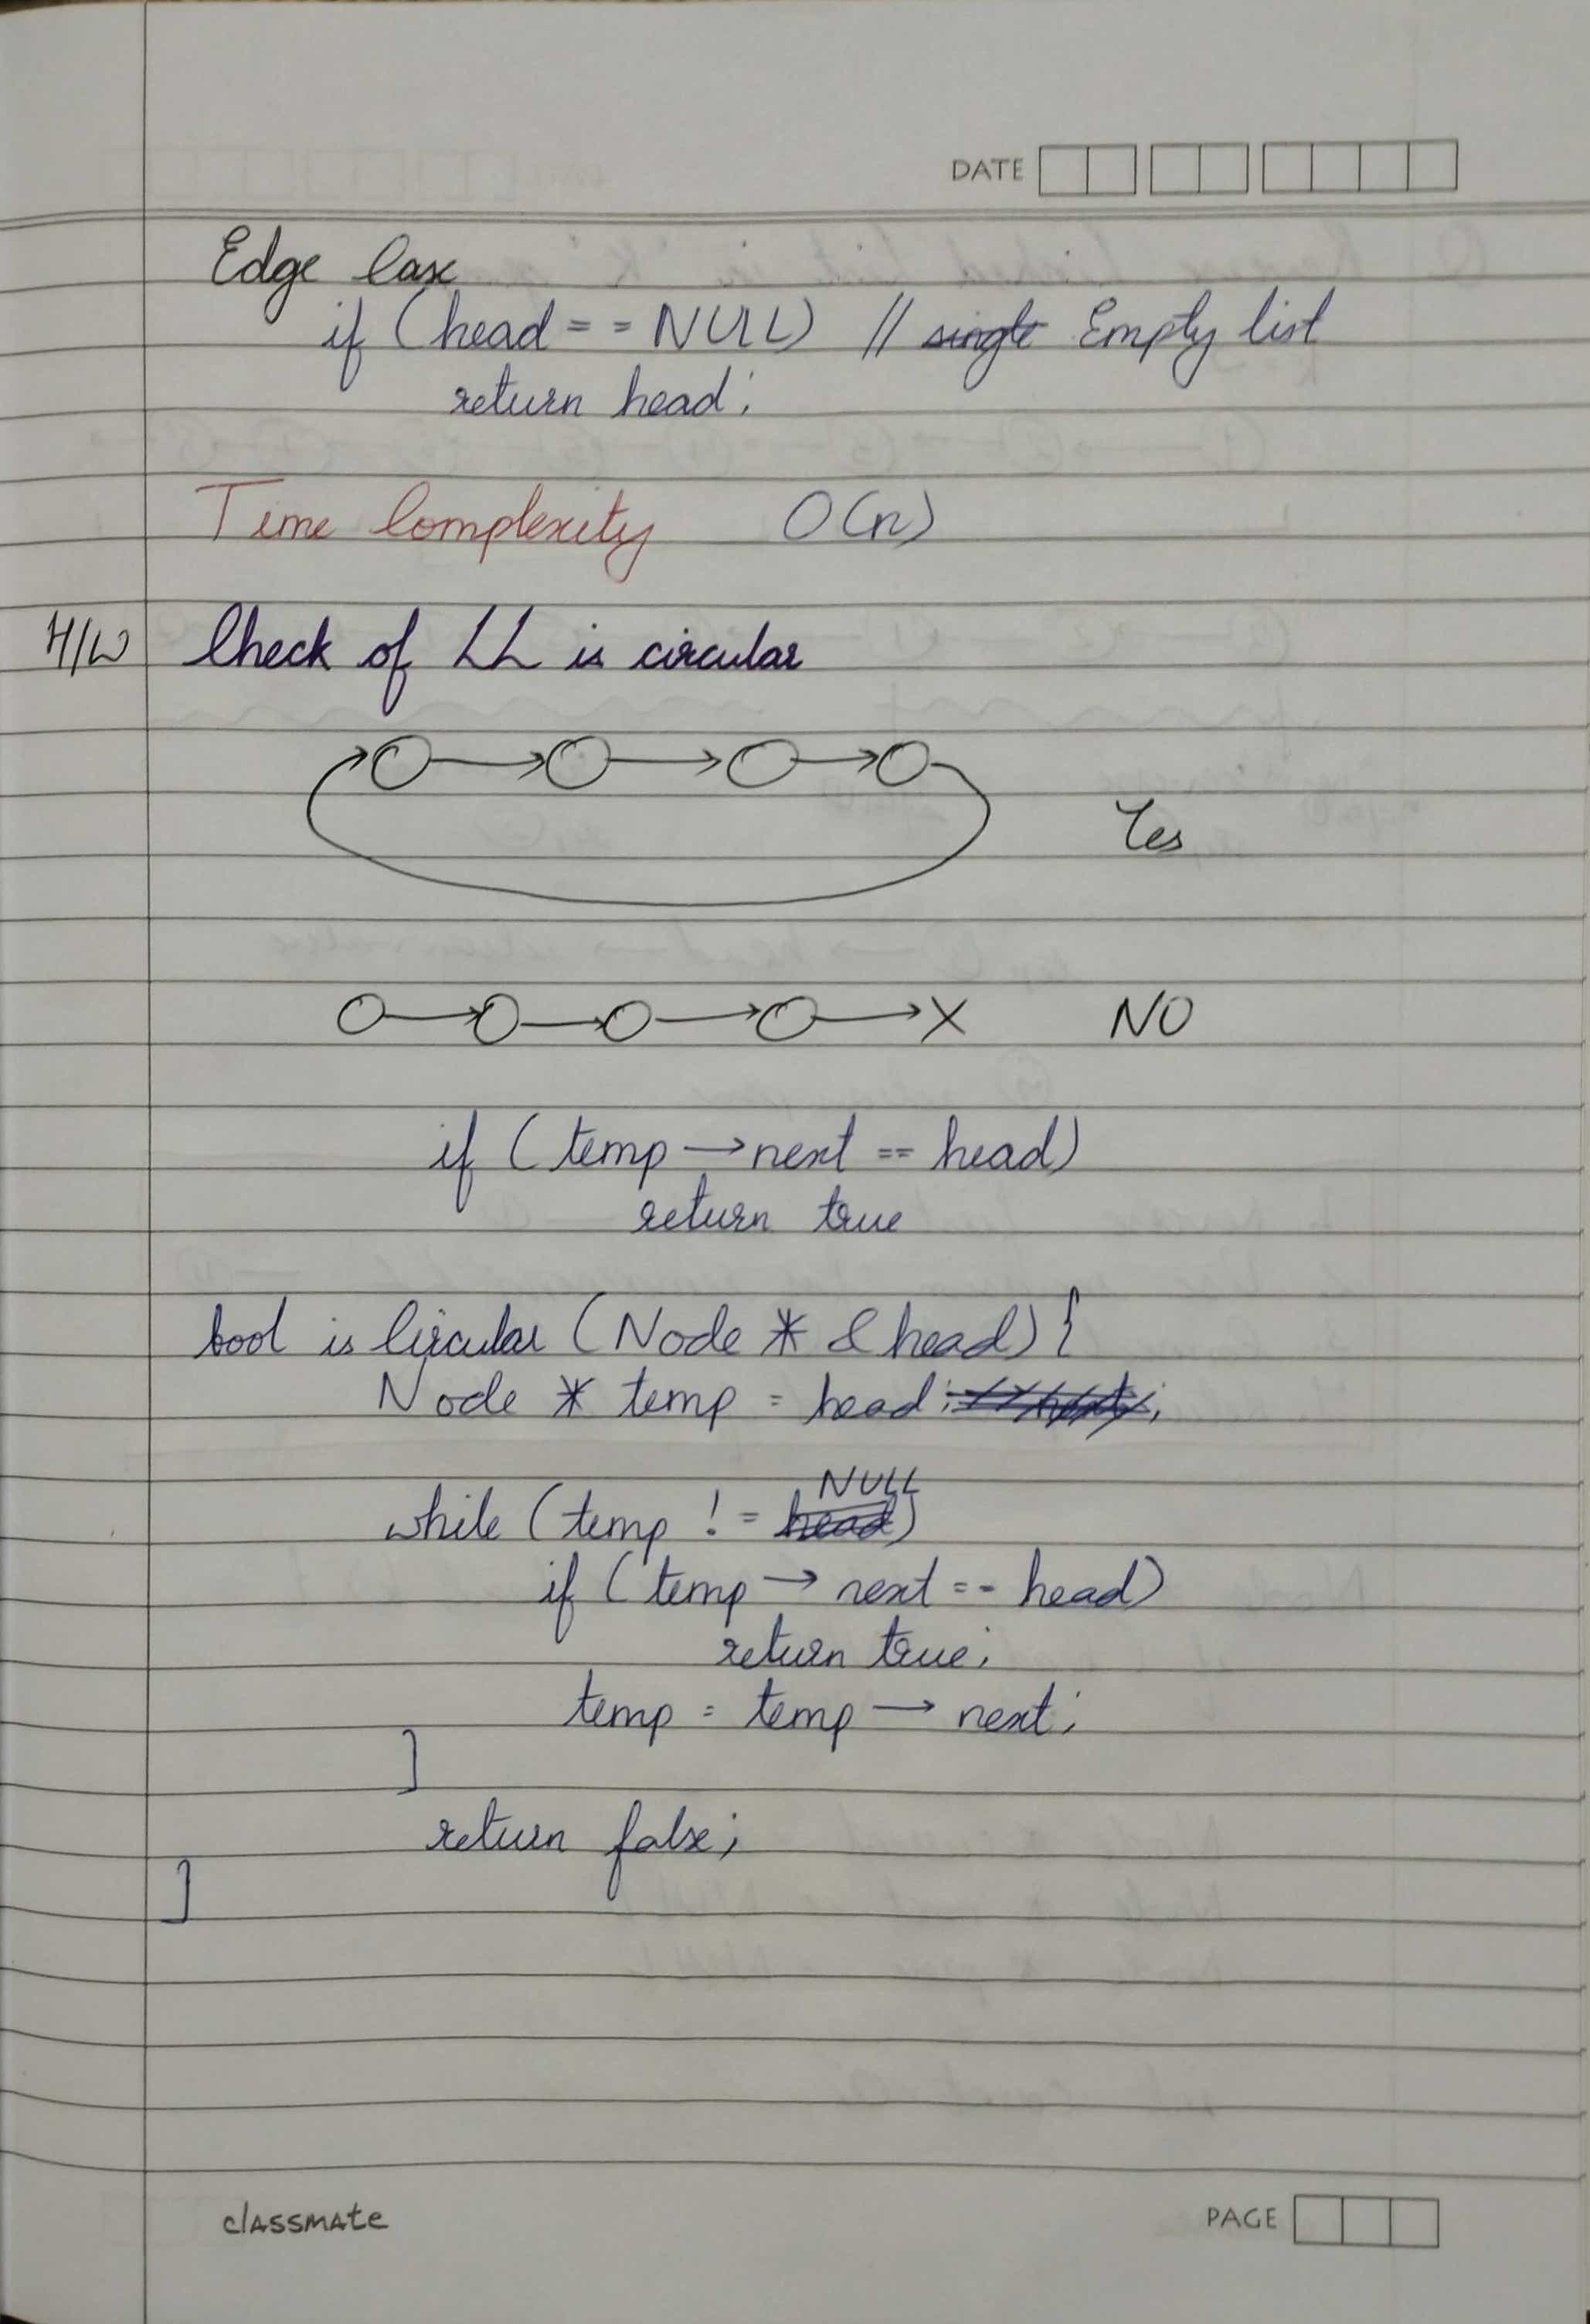 DATE
Edge Case
if (head == NULL) // single Empty list
return head;
Time Complexity O(n)
H/W Check of LL is circular
Yes
X NO
if (temp → next == head)
return true
bool is Circular (Node * & head) {
Node * temp = head;
NULL
while (temp != head)
if (temp → next == head)
return true;
temp = temp → next;
}
return false;
}
classmate PAGE